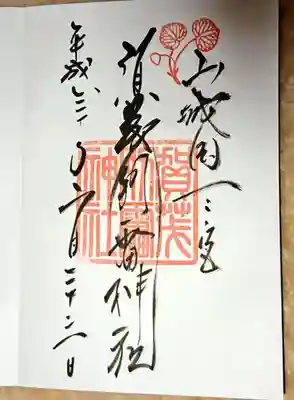 山城国一之宮
賀茂別雷神社
平成三十年六月二十二日
賀茂
別雷
神社